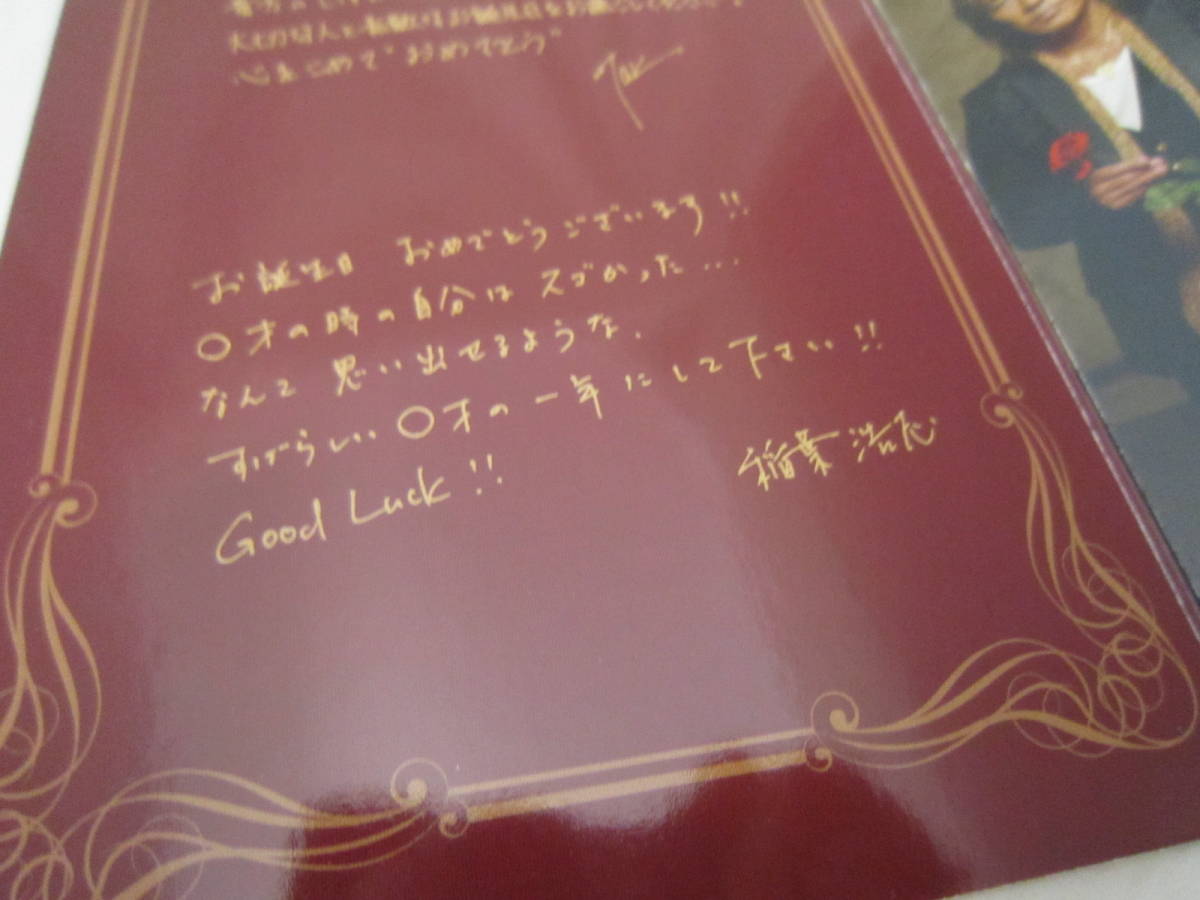 大切な人と素敵なお誕生日をお過ごしください。
心をこめて"おめでとう"
Tak
お誕生日 おめでとうございます!!
〇才の時の自分は スゴかった…
なんて 思い出せるような、
すばらしい 〇才の一年にして下さい!!
Good Luck !!
稲葉 浩志